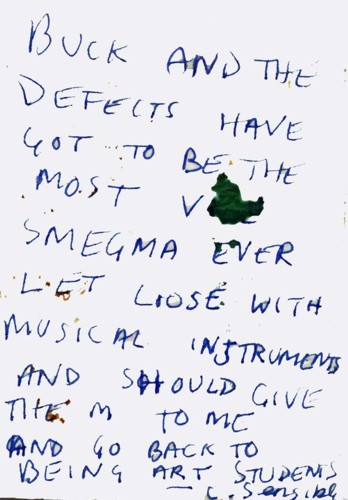 BUCK AND THE
DEFECTS HAVE
GOT TO BE THE
MOST
SMEGMA EVER
LET LOOSE WITH
MUSICAL INSTRUMENTS
AND SHOULD GIVE
THEM TO ME
AND GO BACK TO
BEING ART STUDENTS
C. Sensible